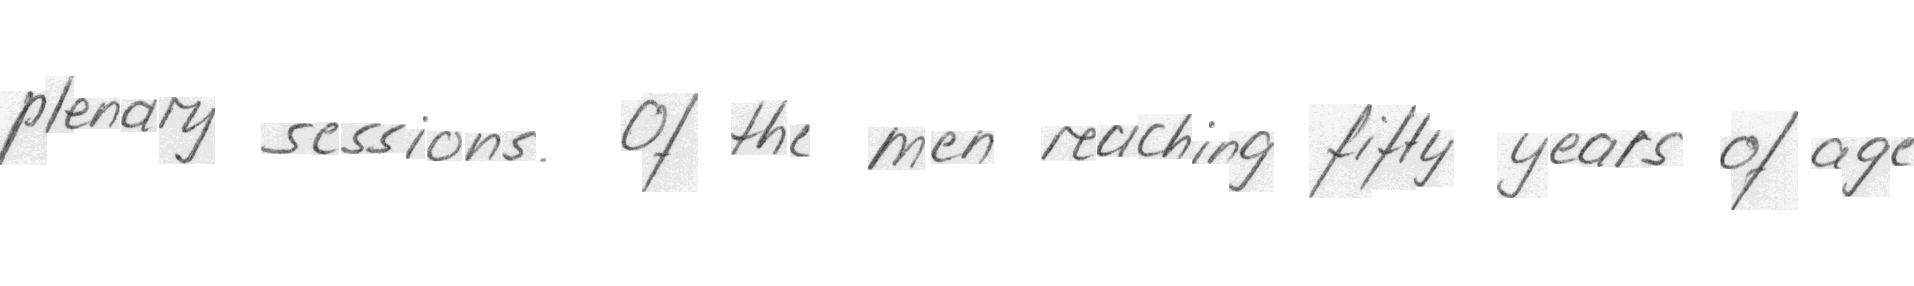 plenary sessions. Of the men reaching fifty years of age